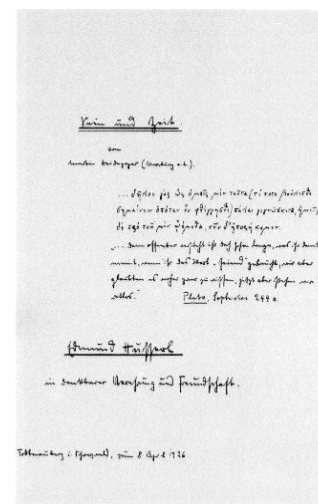 Sein und Zeit.
von
Martin Heidegger (Marburg a. L.).
... δῆλον γὰρ ὡς ὑμεῖς μὲν ταῦτα (τί ποτε βούλεσθε
σημαίνειν ὁπόταν ὂν φθέγγησθε) πάλαι γιγνώσκετε, ἡμεῖς
δὲ πρὸ τοῦ μὲν ᾠόμεθα, νῦν δ' ἠπορήκαμεν.
„... denn offenbar versteht ihr doch schon lange, was ihr damit
meint, wenn ihr das Wort „seiend“ gebraucht, wir aber
glaubten es vorher zwar zu wissen, jetzt aber stehen wir
ratlos.“ Plato, Sophistes 244 a.
Edmund Husserl
in dankbarer Verehrung und Freundschaft.
Todtnauberg i. Schwarzwald, zum 8. April 1926